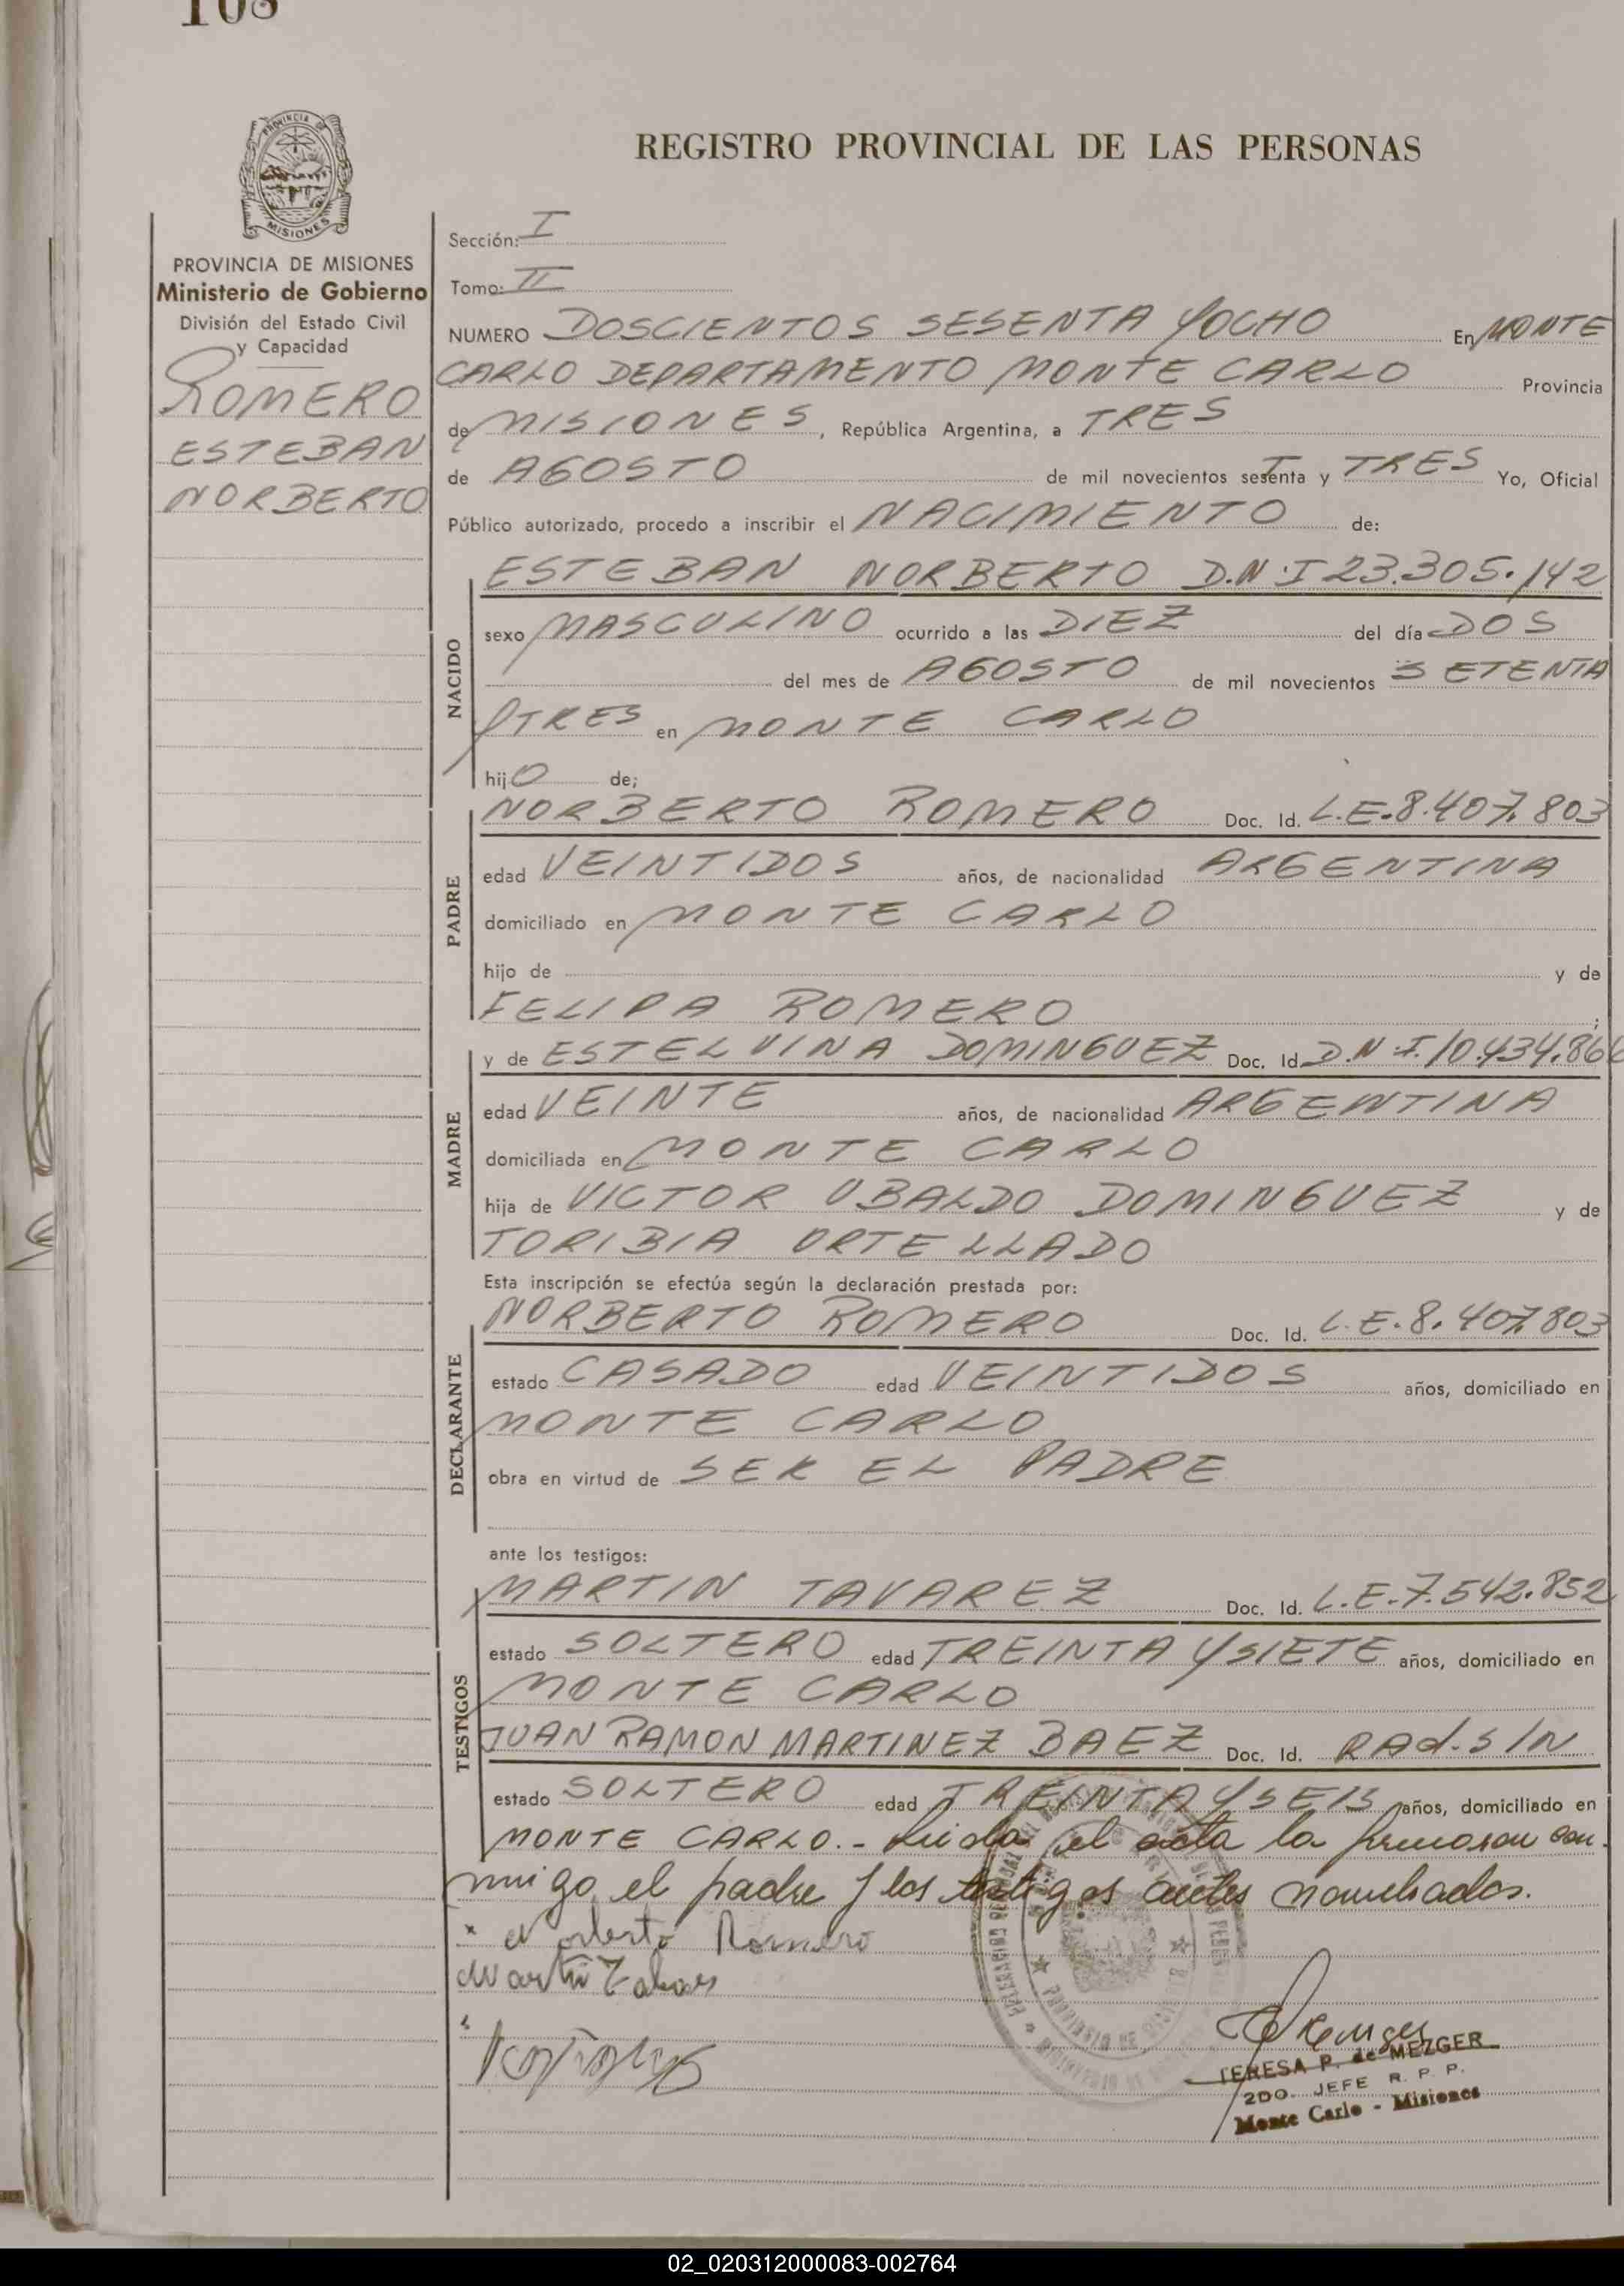 108
PROVINCIA DE
MISIONES
PROVINCIA DE MISIONES
Ministerio de Gobierno
División del Estado Civil
y Capacidad
ROMERO
ESTEBAN
NORBERTO
REGISTRO PROVINCIAL DE LAS PERSONAS
Sección: I
Tomo: II
NUMERO DOSCIENTOS SESENTA Y OCHO En MONTE
CARLO DEPARTAMENTO MONTE CARLO Provincia
de MISIONES, República Argentina, a TRES
de AGOSTO de mil novecientos setenta y TRES Yo, Oficial
Público autorizado, procedo a inscribir el NACIMIENTO de:
NACIDO
ESTEBAN NORBERTO D.N.I 23.305.142
sexo MASCULINO ocurrido a las DIEZ del día DOS
del mes de AGOSTO de mil novecientos SETENTA
Y TRES en MONTE CARLO
hijO de;
PADRE
NORBERTO ROMERO Doc. Id. L.E.8.407.803
edad VEINTIDOS años, de nacionalidad ARGENTINA
domiciliado en MONTE CARLO
hijo de y de
FELIPA ROMERO ;
MADRE
y de ESTELVINA DOMINGUEZ Doc. Id. D.N.I.10.434.86
edad VEINTE años, de nacionalidad ARGENTINA
domiciliada en MONTE CARLO
hija de VICTOR UBALDO DOMINGUEZ y de
TORIBIA ORTELLADO
Esta inscripción se efectúa según la declaración prestada por:
DECLARANTE
NORBERTO ROMERO Doc. Id. L.E.8.407.803
estado CASADO edad VEINTIDOS años, domiciliado en
MONTE CARLO
obra en virtud de SER EL PADRE
ante los testigos:
TESTIGOS
MARTIN TAVAREZ Doc. Id. L.E.7.542.852
estado SOLTERO edad TREINTA Y SIETE años, domiciliado en
MONTE CARLO
JUAN RAMON MARTINEZ BAEZ Doc. Id. RAd. S/N
estado SOLTERO edad TREINTA Y SEIS años, domiciliado en
MONTE CARLO.- Leida el acta la firmaron con-
migo el padre y los testigos antes nombrados.
x Norberto Romero
Martin Tabares
TERESA P. de MEZGER
2DO. JEFE R. P. P.
Monte Carlo - Misiones
02_020312000083-002764